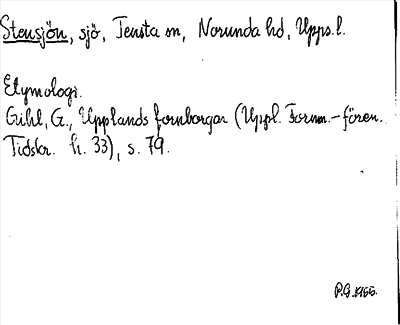 Stensjön, sjö, Tensta sn, Norunda hd, Upps. l.
Etymologi.
Gihl, G., Upplands fornborgar (Uppl. Fornm.-fören.
Tidskr. h. 33), s. 79.
P.G. 1955.